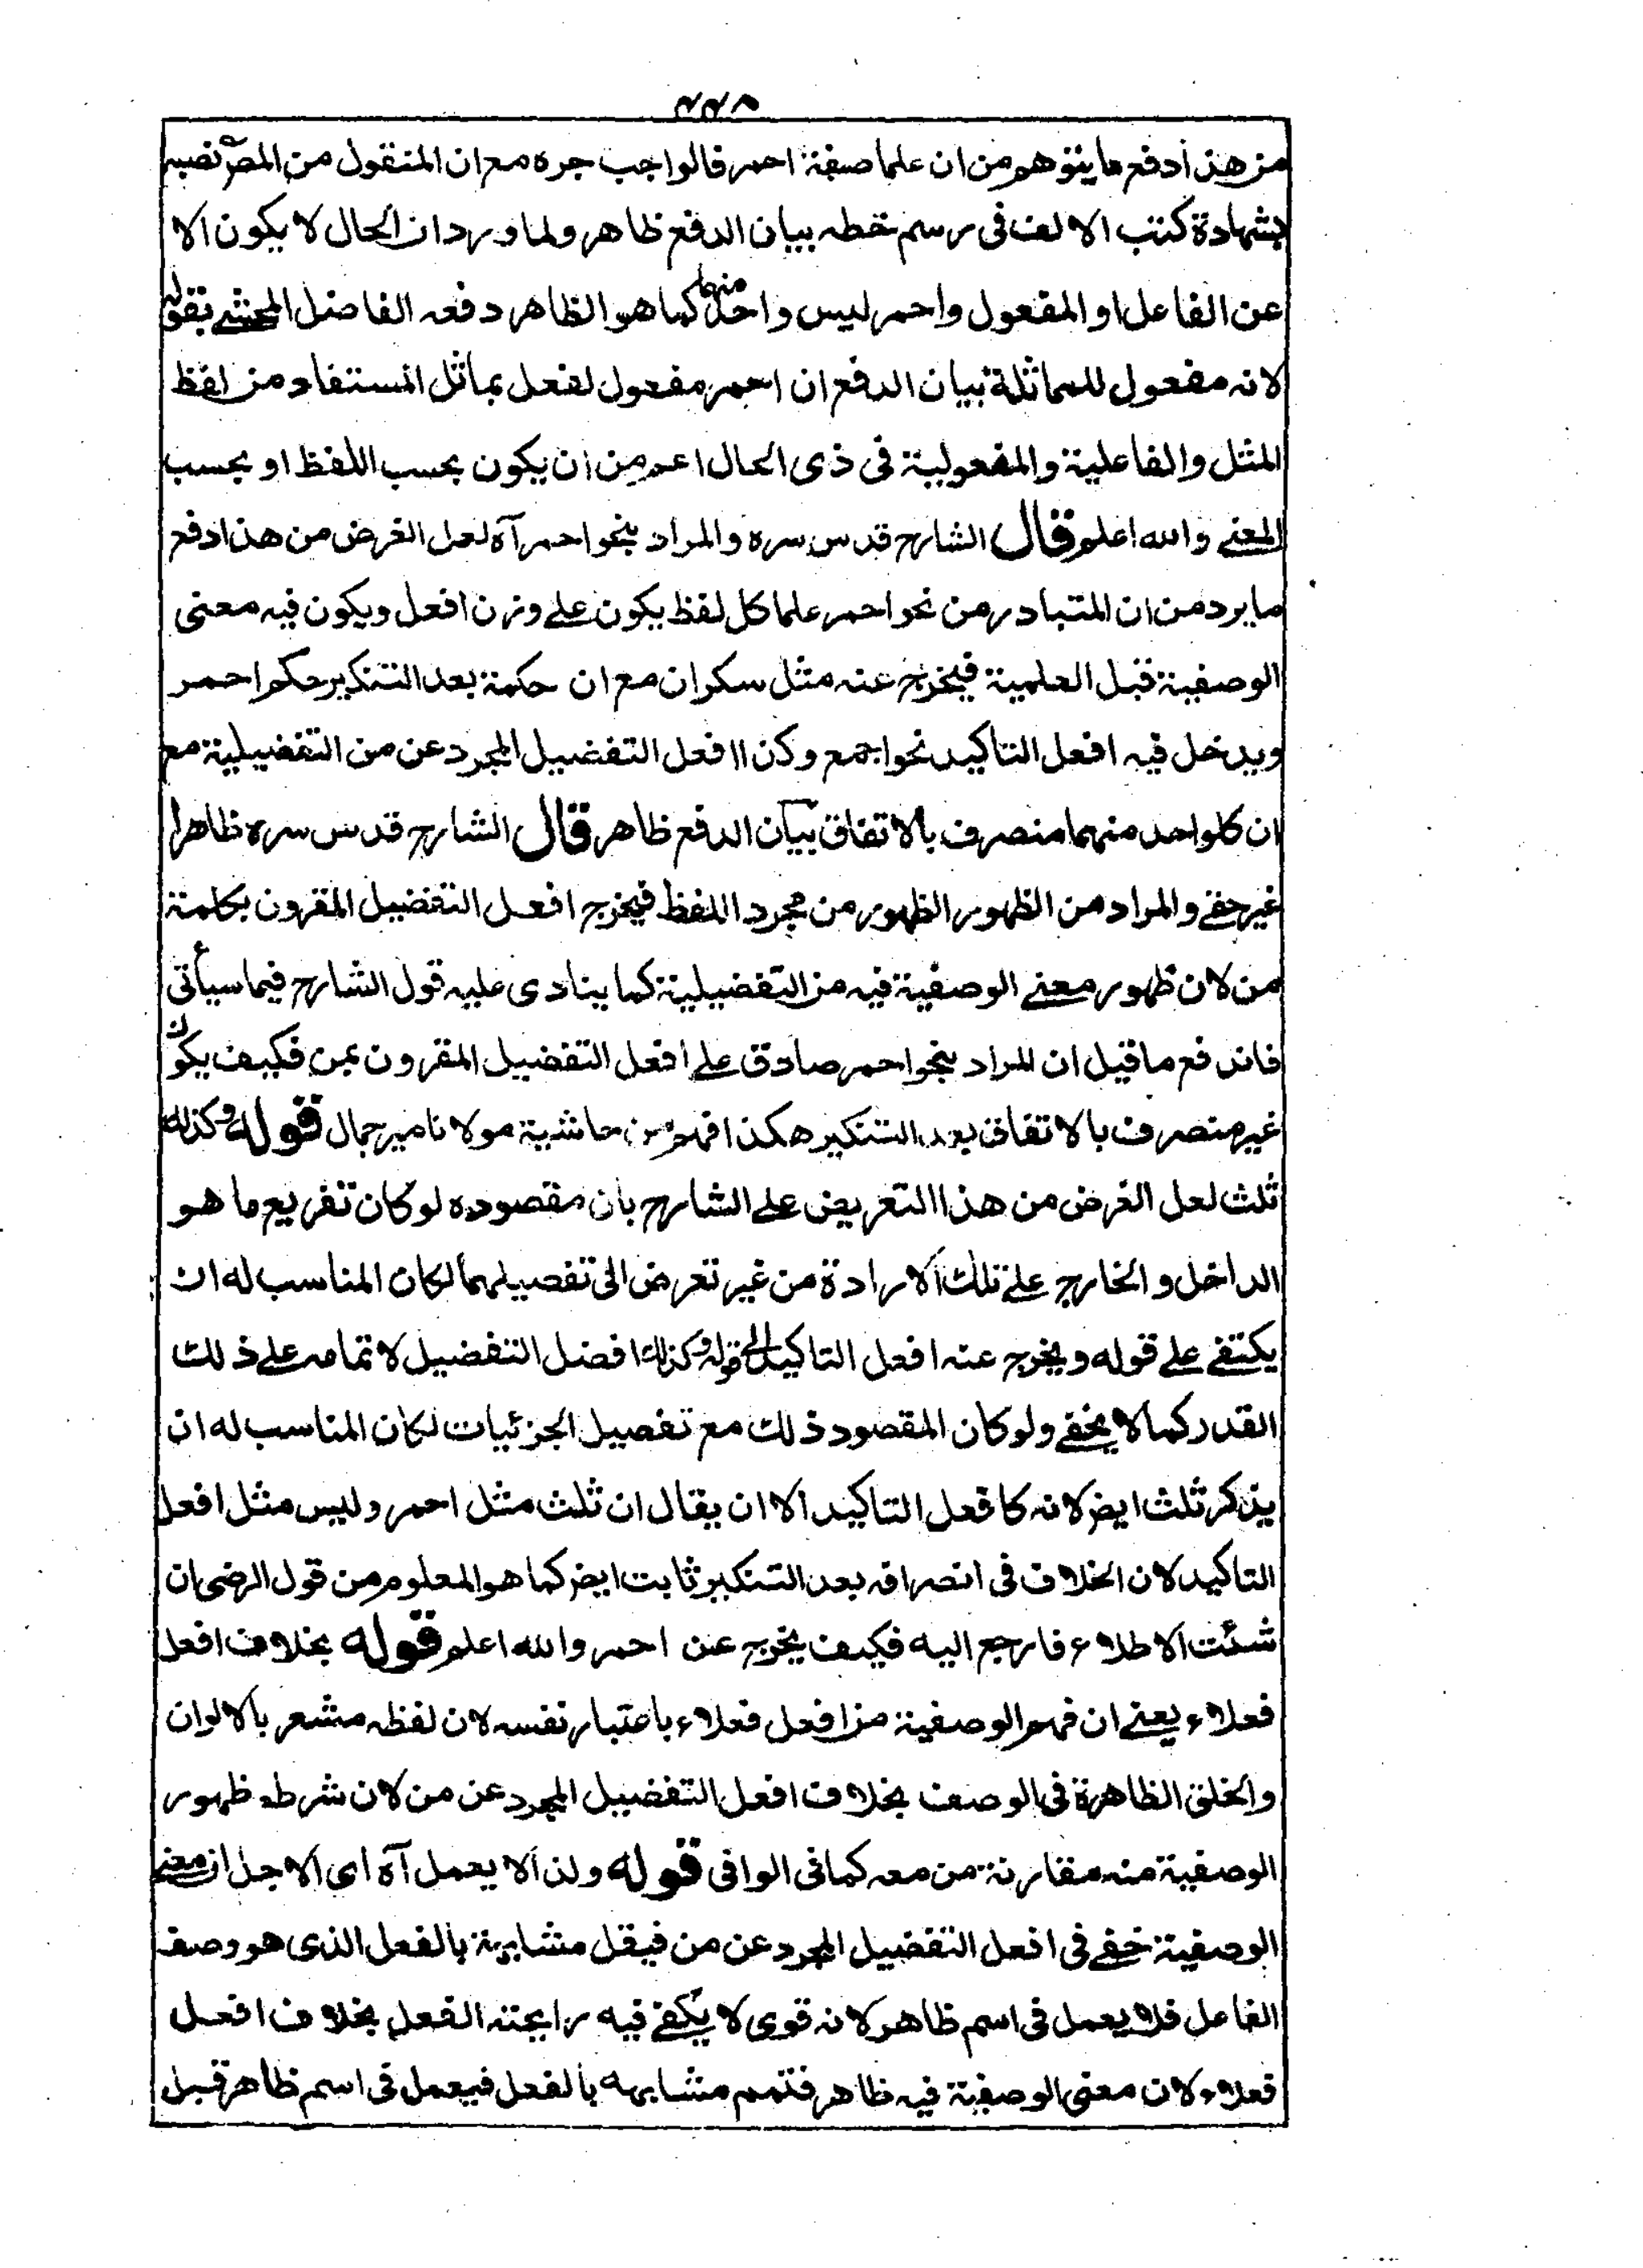 ۲۲۸
من هذا دفع ما يتوهم من ان علما صفة احمر فالواجب جره مع ان المنقول من المصؒ نصبه
بشهادة كتب الالف فى رسم خطه بيان الدفع ظاهر ولما ورد ان الحال لا يكون الا
عن الفاعل او المفعول واحمر ليس واحدا منهما كما هو الظاهر دفعه الفاضل المحشے بقوله
لانه مفعول للمماثلة بيان الدفع ان احمر مفعول لفعل يماثل المستفاد من لفظ
المثل والفاعلية والمفعولية فى ذى الحال اعم من ان يكون بحسب اللفظ او بحسب
المعنے والله اعلم قال الشارح قدس سره والمراد بنحو احمر آه لعل الغرض من هذا دفع
ما يرد من ان المتبادر من نحو احمر علما كل لفظ يكون علے وزن افعل ويكون فيه معنى
الوصفية قبل العلمية فيخرج عنه مثل سكران مع ان حكمة بعد التنكير حكم احمر
ويدخل فيه افعل التاكيد نحو اجمع وكذا افعل التفضيل المجرد عن من التفضيلية مع
ان كلواحد منهما منصرف بالاتفاق بيان الدفع ظاهر قال الشارح قدس سره ظاهرا
غير خفے والمراد من الظهور الظهور من مجرد اللفظ فيخرج افعل التفضيل المقرون بكلمة
من لان ظهور معنے الوصفية فيه من التفضيلية كما ينادى عليه قول الشارح فيما سيأتى
فاندفع ما قيل ان المراد بنحو احمر صادق علے افعل التفضيل المقرون بمن فكيف يكون
غير منصرف بالاتفاق بعد التنكير هكذا فهم من حاشية مولانا مير جمال قوله وكذلك
ثلث لعل الغرض من هذا التعريض علے الشارح بان مقصوده لو كان تفريع ما هو
الداخل والخارج علے تلك الارادة من غير تعرض الى تفصيلهما لكان المناسب له ان
يكتفے علے قوله ويخرج عنه افعل التاكيد الى قوله وكذلك افضل التفضيل لاتمامه علے ذلك
القدر كما لا يخفے ولو كان المقصود ذلك مع تفصيل الجزئيات لكان المناسب له ان
يذكر ثلث ايضر لانه كافعل التاكيد الا ان يقال ان ثلث مثل احمر وليس مثل افعل
التاكيد لان الخلاف فى انصرافه بعد التنكير ثابت ايضر كما هو المعلوم من قول الرضى ان
شئت الاطلاع فارجع اليه فكيف يخرج عن احمر والله اعلم قوله بخلاف افعل
فعلاء يعنے ان فهم الوصفية من افعل فعلاء باعتبار نفسه لان لفظه مشعر بالالوان
والخلق الظاهرة فى الوصف بخلاف افعل التفضيل المجرد عن من لان شرط ظهور
الوصفية منه مقارنة من معه كما فى الوافى قوله ولذا لا يعمل آه اى لاجل ان معنے
الوصفية خفے فى افعل التفضيل المجرد عن من فيقل مشابهة بالفعل الذى هو وصف
الفاعل فلا يعمل فى اسم ظاهر لانه قوى لا يكفے فيه رايحته الفعل بخلاف افعل
فعلاء لان معنى الوصفية فيه ظاهر فتمم مشابهه بالفعل فيعمل فى اسم ظاهر قبل